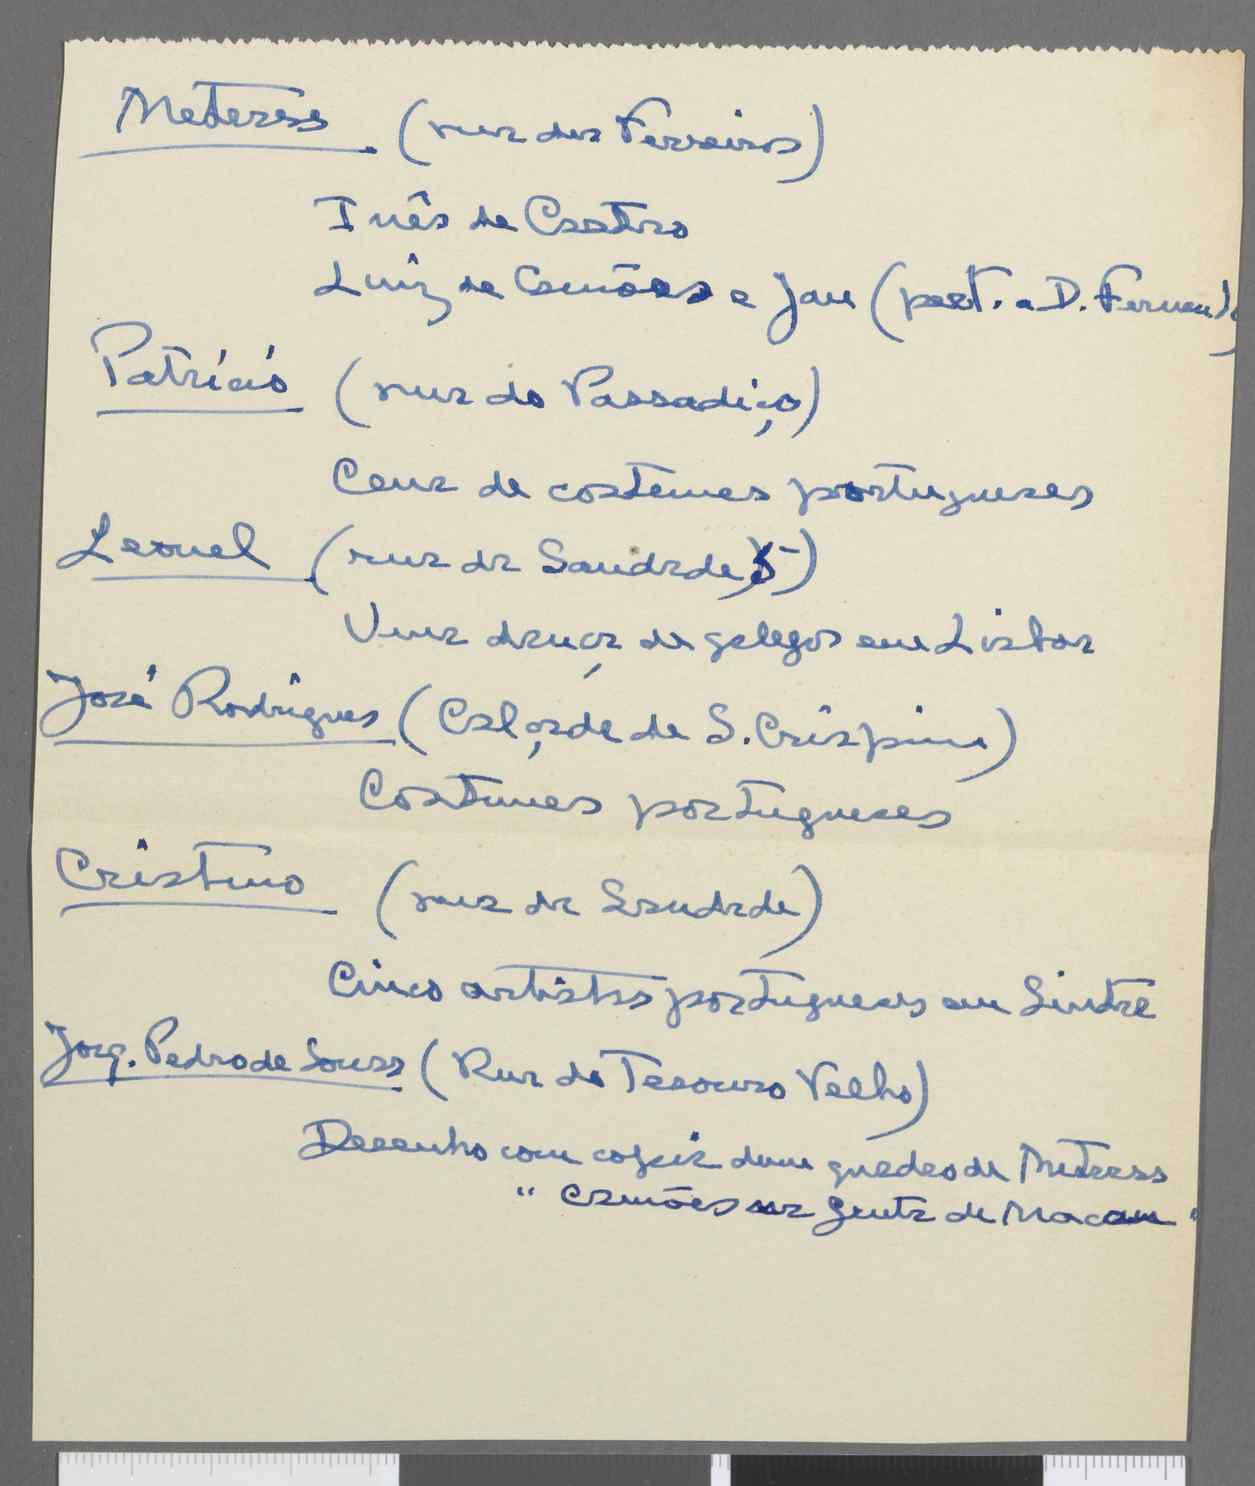 Meterass (rua dos Ferreiros)
Inês de Castro
Luiz de Camões e Jau (pert. a D. Fernando
Patrício (rua do Passadiço)
Cena de costumes portugueses
Leonel (rua da Saudade, 5)
Uma dança de galegos em Lisboa
José Rodrigues (Calçada de S. Crispim)
Costumes portugueses
Cristino (rua da Saudade)
Cinco artistas portugueses em Sintra
Joaq. Pedro de Sousa (Rua do Tesouro Velho)
Desenho com copia dum quadro de Metrass
"Camões na gruta de Macau"